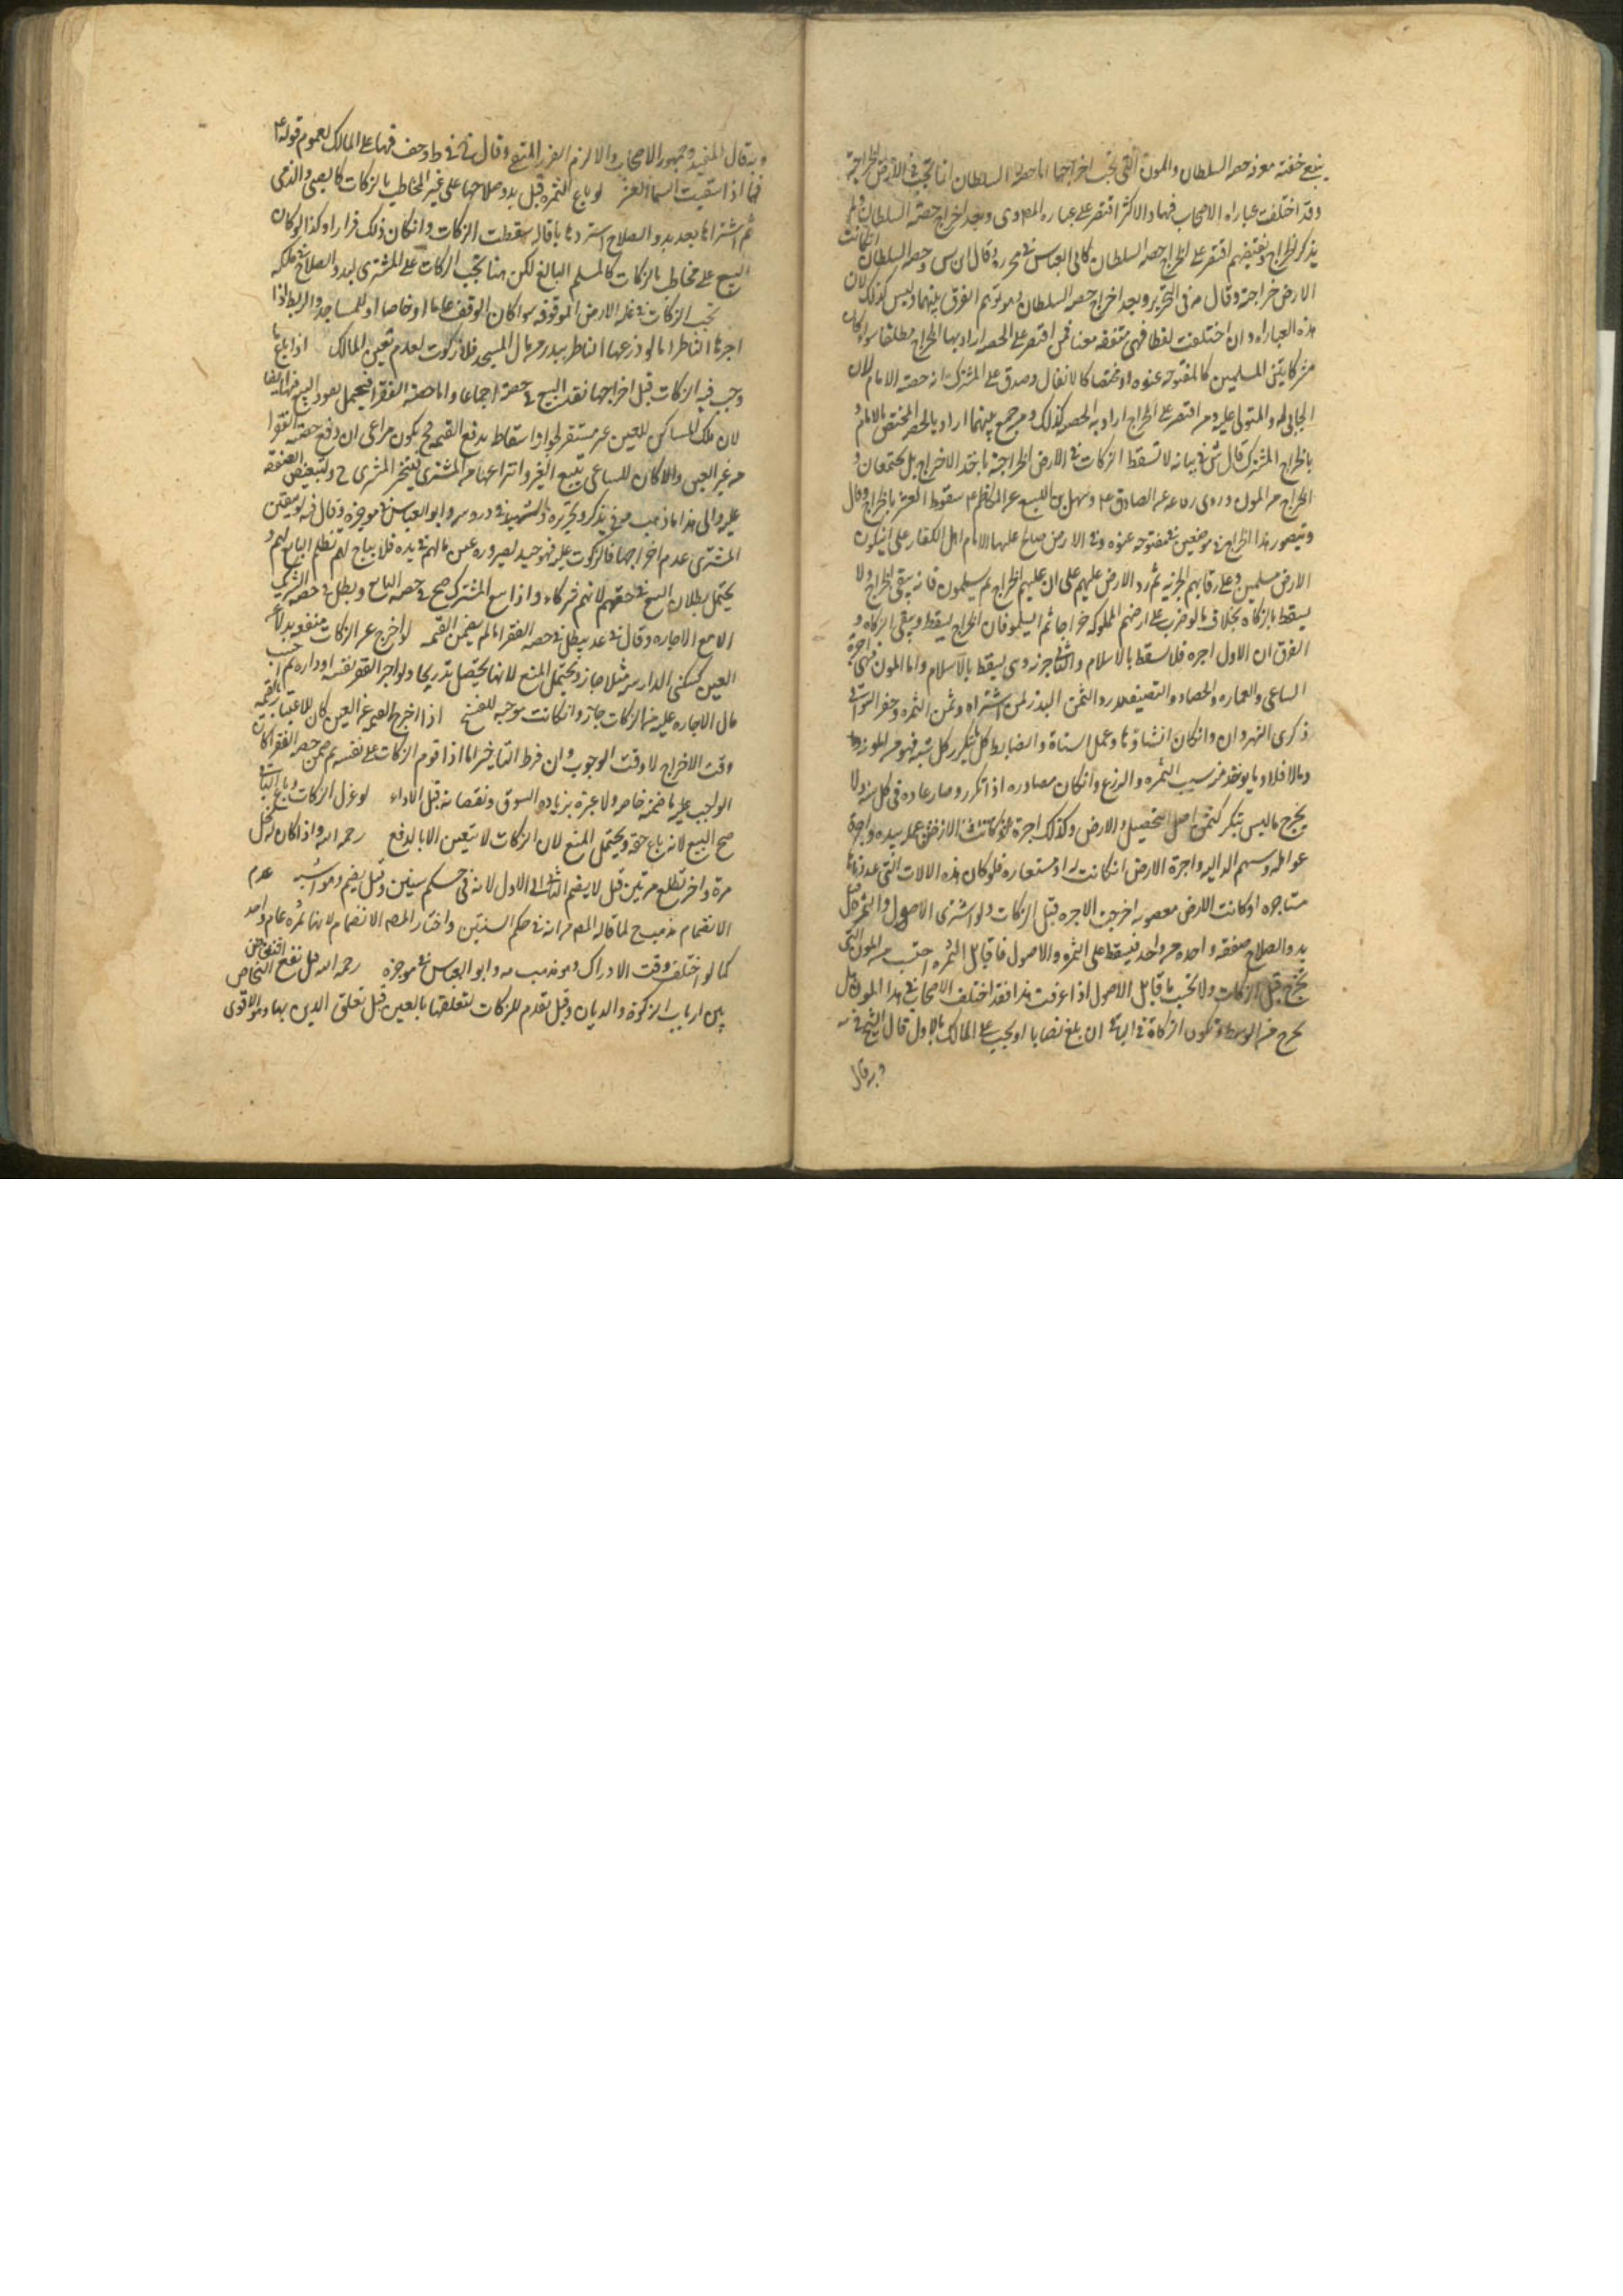 ينبغي خفته معرفه حصه السلطان والمون التي تجب اخراجها اما حصة السلطان انما تجب في الارض الخراجية
وقد اختلفت عباراه الاصحاب فيها والاكثر اقتصر على عباره المص وى وبعد اخراج حصة السلطان ولم
يذكر الخراج وبعضهم اقتصر على اخراج حصه السلطان كابي العباس في محرره وقال ان س وحصه السلطان ان كانت
الارض خراجية وقال في التحرير وبعد اخراج حصه السلطان وهو توهم الفرق بينهما وليس كذلك لان
هذه العباراه وان اختلفت لفظا فهي متفقه معنا فمن اقتصر على الحصه اراد بها الخراج مطلقا سواء كان
مشركا بين المسلمين كالمفتوحه عنوه او مختصا كالانفال وصدق على المشترك انه حصة الامام لان
الجابي له والمتولي عليه ومن اقتصر على الخراج اراد به الحصه كذلك ومن جمع بينهما اراد بالحصه المختص بالامام و
بالخراج المشترك قال ش في بيانه لا تسقط الزكات في الارض الخراجية باخذ الاخراج بل يجتمعان و
الخراج من المون وروى رفاعه عن الصادق ع وسهل بن اليسع عن الكاظم ع سقوط العشر بالخراج وقال
ويتصور هذا الخراج في موضعين في مفتوحه عنوه وفي الارض صالح عليها الامام اهل الكفار على ان يكون
الارض للمسلمين وعلى رقابهم الجزيه ثم رد الارض عليهم على ان عليهم الخراج ثم يسلمون فانه يبقى الخراج ولا
يسقط بالزكاه بخلاف ما لو ضرب على ارضهم المملوكه خراجا ثم اسلموا فان الخراج يسقط ويبقى الزكاه و
الفرق ان الاول اجره فلا يسقط بالاسلام والثاني جزيه وهي يسقط بالاسلام واما المون فهي اجرة
الساعي والعماره والحصاد والتصفيه ورد الثمن البذر لمن اشتراه وثمن الثمره وحفر السواقي
ذكرى النهروان وان كان انشاؤها وعمل استاة والضابط كل متكرر كل سنه فهو من المونه وما
وما لا فلا وما يوخذ من سبب الثمره والزرع وان كان مصادره اذا تكرر وصار عاده في كل سنه ولا
يخرج ما ليس بتكرر كثمن اصل النخيل والارض وكذلك اجرة عمل بيده واجرة
عوامله وسهم الداليه واجرة الارض ان كانت له او مستعاره فلو كان هذه الالات التي عددناها
مستاجره او كانت الارض مغصوبه اخرجت الاجره قبل الزكات ولو اشترى الاصول والثمر قبل
بدو الصلاح صفقه واحده من واحد فيسقط على الثمره والاصول فما قابل الثمره احتسب من المون التي
تخرج قبل الزكات ولا تحسب ما قابل الاصول اذا عرفت هذا فقد اختلف الاصحاب في هذا المون هل
يخرج من الوسط وتكون الزكاة في الباقي ان بلغ نصابا او يجب على المالك بالاول قال الشيخ في يه
وبه قال
وبه قال المفيد وجمهور الاصحاب والا لزم الضرر المنفي وقال في ط وخف فهما على المالك لعموم قوله ع
فيما اذا سقيت السماء العشر لو باع الثمره قبل بدو صلاحها على غير المخاطب بالزكات كالصبي والذمي
ثم اشتراها بعد بدو الصلاح او استردها باقاله سقطت الزكات وان كان ذلك فرارا وكذا لو كان
البيع على مخاطب بالزكات كالمسلم البالغ لكن هنا تجب الزكات على المشتري لبدو الصلاح في ملكه
تجب الزكات في غله الارض الموقوفه سوا كان الوقف عاما او خاصا او للمساجد والربط اذا
اجرها الناظر اما لو زرعها الناظر ببذر من مال المسجد فلا زكوت لعدم تعين المالك اذا باع ما
وجب فيه الزكات قبل اخراجها نفذ البيع في حصته اجماعا واما حصة الفقرا فيحتمل نفوذ البيع فيها ايضا
لان ملك المساكين للعين غير مستقر لجواز اسقاط بدفع القيمه فح يكون مراعى ان دفع حصة الفقرا
من غير العين والا كان للساعي تتبع العين وانتزاعها من المشتري فيتخير المشتري ح ولتبعيض الصفقه
عليه والى هذا ذهب في تذكره وتحريره والشهيد في دروسه وابو العباس في موجزه وقال فيه لو تيقن
المشتري عدم اخراجها فالزكوت عليه فهو جيد لصيروره عين مالهم في يده فلا يباح لهم تظلم البايع لهم و
يحتمل بطلان البيع في حقهم لانهم شركاء واذا بيع المشترك صح في حصه البايع وبطل في حصه الشريك
الا مع الاجازه وقال في عد يبطل في حصه الفقرا ما لم يضمن القيمه لو اخرج عن الزكات منفعه بدلا عن
العين كسكنى الدار سنه مثلا جاز ويحتمل المنع لانها يحصل تدريجا ولو اجر الفقير نفسه او داره ثم احتسب
مال الاجاره عليه من الزكات جاز وان كانت موجبه للفسخ اذا اخرج القيمه عن العين كان الاعتبار بالقيمه
وقت الاخراج لا وقت الوجوب وان فرط التاخير اما اذا قوم الزكات على نفسه ثم ضمن حصه الفقرا كان
الواجب عليه ما ضمنه خاصه ولا عبرة بزياده السوق ونقصانه قبل الاداء لو عزل الزكات وباع الباقي
صح البيع لانه باع حقه ويحتمل المنع لان الزكات لا يتعين الا بالدفع رحمه الله واذا كان له نخل
مرة واخر تطلع مرتين قيل لا يضم الثاني الى الاول لانه في حكم سنتين وقيل يضم وهو اشبه عدم
الانضمام مذهب ح لما قاله المص من انه في حكم السنتين واختار المص الانضمام لانها ثمره عام واحد
كما لو اختلف وقت الادراك وهو مذهب مه وابو العباس في موجزه رحمه الله هل تقع التحاص
بين ارباب الزكوة والديان وقيل تقدم للزكات لتعلقها بالعين قبل تعلق الدين بها وهو الاقوى